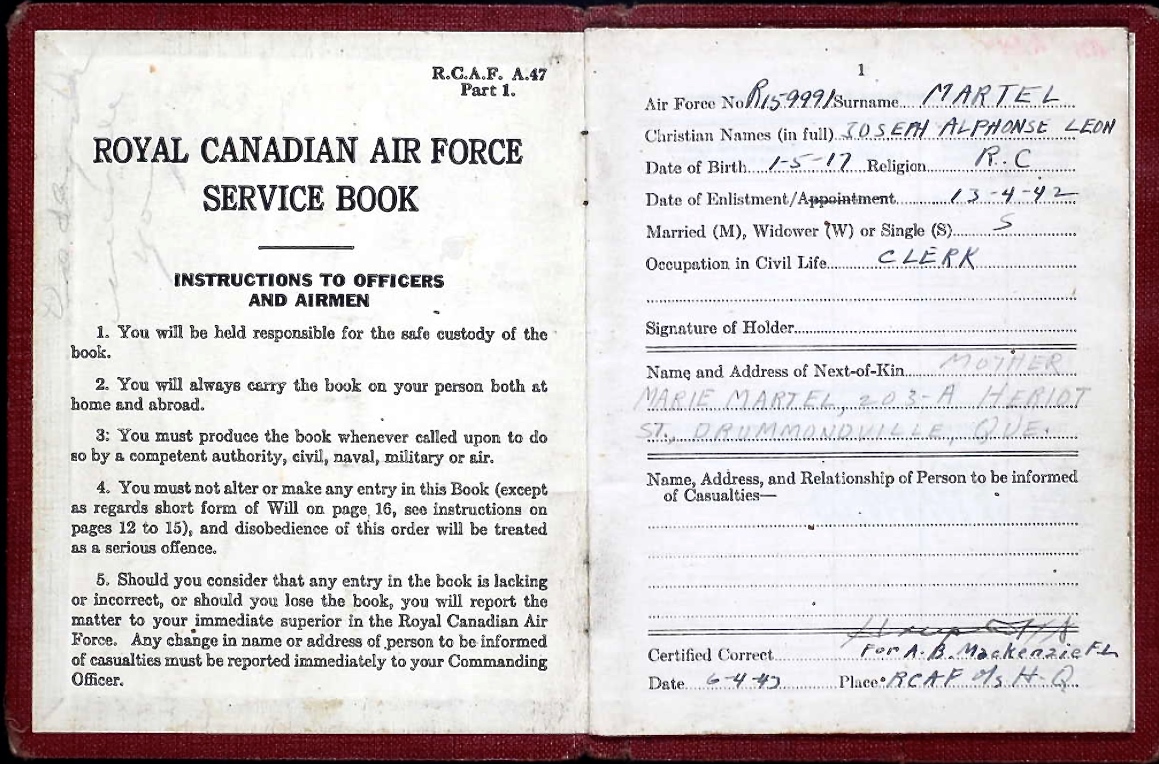 R.C.A.F. A.47
Part 1.
ROYAL CANADIAN AIR FORCE
SERVICE BOOK
INSTRUCTIONS TO OFFICERS
AND AIRMEN
1. You will be held responsible for the safe custody of the
book.
2. You will always carry the book on your person both at
home and abroad.
3: You must produce the book whenever called upon to do
so by a competent authority, civil, naval, military or air.
4. You must not alter or make any entry in this Book (except
as regards short form of Will on page 16, see instructions on
pages 12 to 15), and disobedience of this order will be treated
as a serious offence.
5. Should you consider that any entry in the book is lacking
or incorrect, or should you lose the book, you will report the
matter to your immediate superior in the Royal Canadian Air
Force. Any change in name or address of person to be informed
of casualties must be reported immediately to your Commanding
Officer.
1
Air Force No R159991 Surname MARTEL
Christian Names (in full) JOSEPH ALPHONSE LEON
Date of Birth 1-5-17 Religion R.C
Date of Enlistment/Appointment 13-4-42
Married (M), Widower (W) or Single (S) S
Occupation in Civil Life CLERK
Signature of Holder
Name and Address of Next-of-Kin MOTHER
MARIE MARTEL, 203-A HERIOT
ST., DRUMMONDVILLE, QUE.
Name, Address, and Relationship of Person to be informed
of Casualties—
Certified Correct For A.B. Mackenzie F/L
Date 6-4-43 Place RCAF o/s H-Q